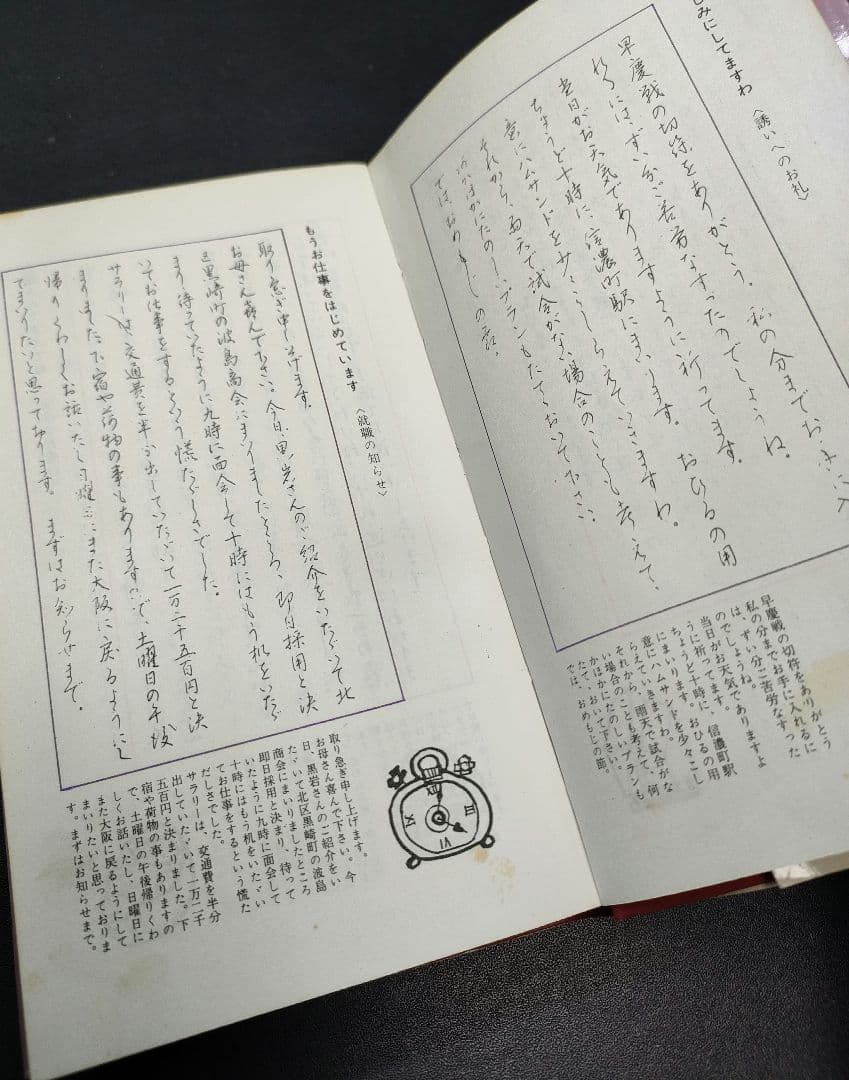 しみにしてますわ 〈誘いへのお礼〉
早慶戦の切符をありがとう。私の分までお手に入
れるには、ずい分ご苦労なすったのでしょうね。
当日がお天気でありますように祈ってます。
ちょうど十時に、信濃町駅にまいります。おひるの用
意にハムサンドを少々こしらえていきますわ。
それから、雨天で試合がない場合のことも考えて、
何かほかにたのしいプランもたてゝおいて下さい。
では、おめもじの節。
早慶戦の切符をありがとう
私の分までお手に入れるに
は、ずい分ご苦労なすった
のでしょうね。
当日がお天気でありますよ
うに祈ってます。
ちょうど十時に、信濃町駅
にまいります。おひるの用
意にハムサンドを少々こし
らえていきますわ。
それから、雨天で試合がな
い場合のことも考えて、何
かほかにたのしいプランも
たてゝおいて下さい。
では、おめもじの節。
もうお仕事をはじめています 〈就職の知らせ〉
取り急ぎ申し上げます。
お母さん喜んで下さい。今日、黒岩さんのご紹介をいたゞいて北
区黒崎町の波島商会にまいりましたところ、即日採用と決
まり、待っていたように九時に面会して十時にはもう机をいたゞ
いてお仕事をするという慌だしさでした。
サラリーは、交通費を半分出していたゞいて一万二千五百円と決
まりました。下宿や荷物の事もありますので、土曜日の午後
帰りくわしくお話いたし、日曜日にまた大阪に戻るようにし
てまいりたいと思っております。まずはお知らせまで。
取り急ぎ申し上げます。
お母さん喜んで下さい。今
日、黒岩さんのご紹介をい
たゞいて北区黒崎町の波島
商会にまいりましたところ
即日採用と決まり、待って
いたように九時に面会して
十時にはもう机をいたゞい
てお仕事をするという慌た
だしさでした。
サラリーは、交通費を半分
出していたゞいて一万二千
五百円と決まりました。下
宿や荷物の事もありますの
で、土曜日の午後帰りくわ
しくお話いたし、日曜日に
また大阪に戻るようにして
まいりたいと思っておりま
す。まずはお知らせまで。
XII
III
VI
IX